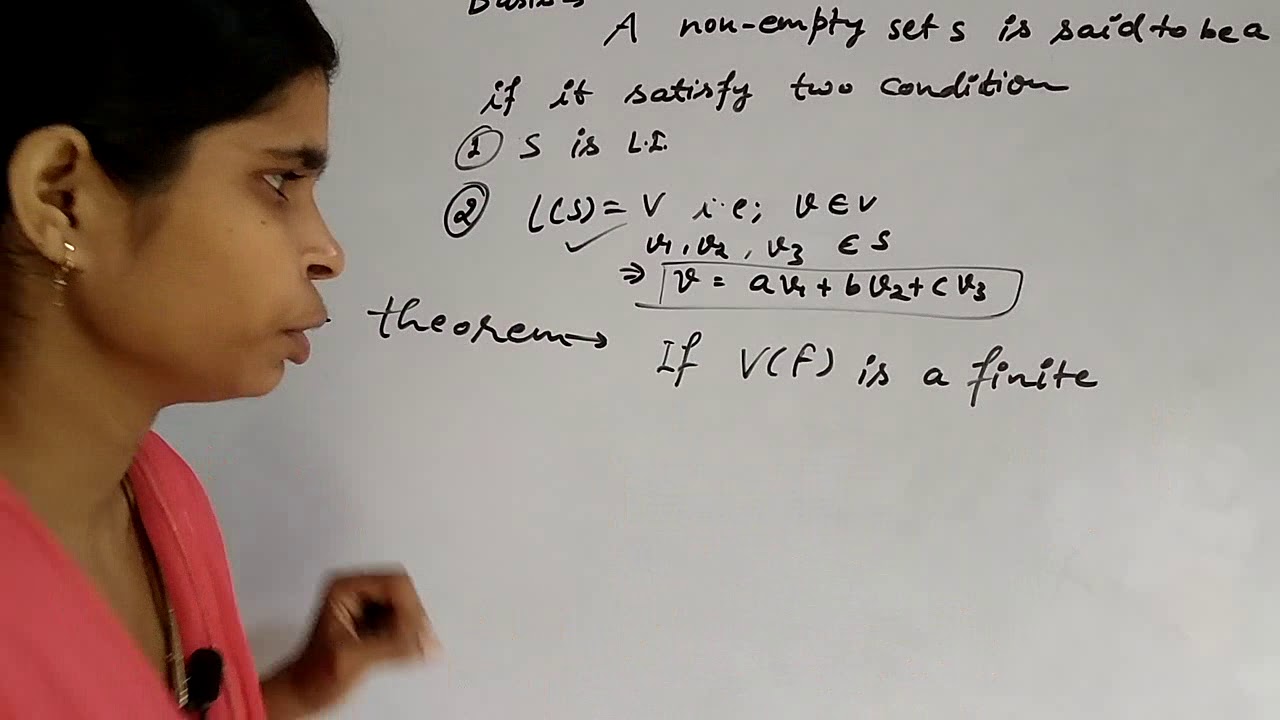 Basis→
A non-empty set S is said to be a
if it satisfy two condition
① S is L.I.
② L(S) = V i.e; v ∈ V
v₁, v₂, v₃ ∈ S
⇒ v = av₁ + bv₂ + cv₃
theorem→ If V(F) is a finite